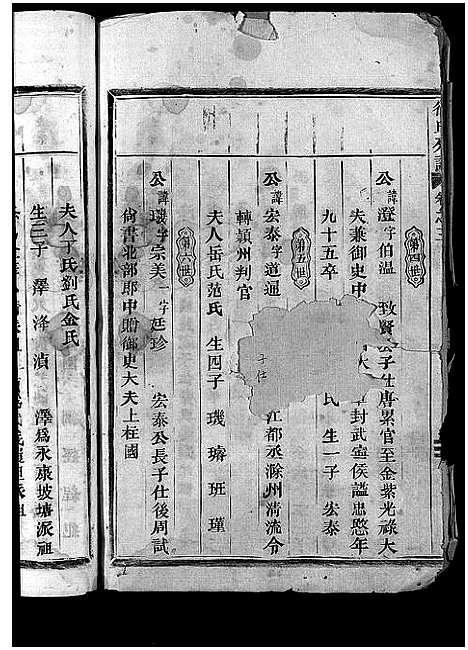 第四世
公諱澄字伯溫 致賢公子仕唐累官至金紫光祿大
夫兼御史中 大 封武寧侯諡忠愍年
九十五卒 氏 生一子 宏泰
第五世
公諱宏泰字道通 子仕 江都丞滁州清流令
轉潁州判官
夫人岳氏范氏 生四子 璣 璿 班 瑾
第六世
公諱璣字宗美一字廷珍 宏泰公長子仕後周試
尙書北部郎中贈御史大夫上柱國
夫人丁氏劉氏金氏
生三子 澤 洚 湞 澤爲永康坡塘派祖